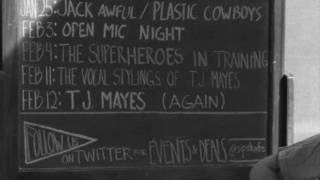 JAN 25: JACK AWFUL / PLASTIC COWBOYS
FEB 3: OPEN MIC NIGHT
FEB 4: THE SUPERHEROES IN TRAINING
FEB 11: THE VOCAL STYLINGS OF T.J. MAYES
FEB 12: T.J. MAYES (AGAIN)
FOLLOW US
ON TWITTER FOR EVENTS & DEALS